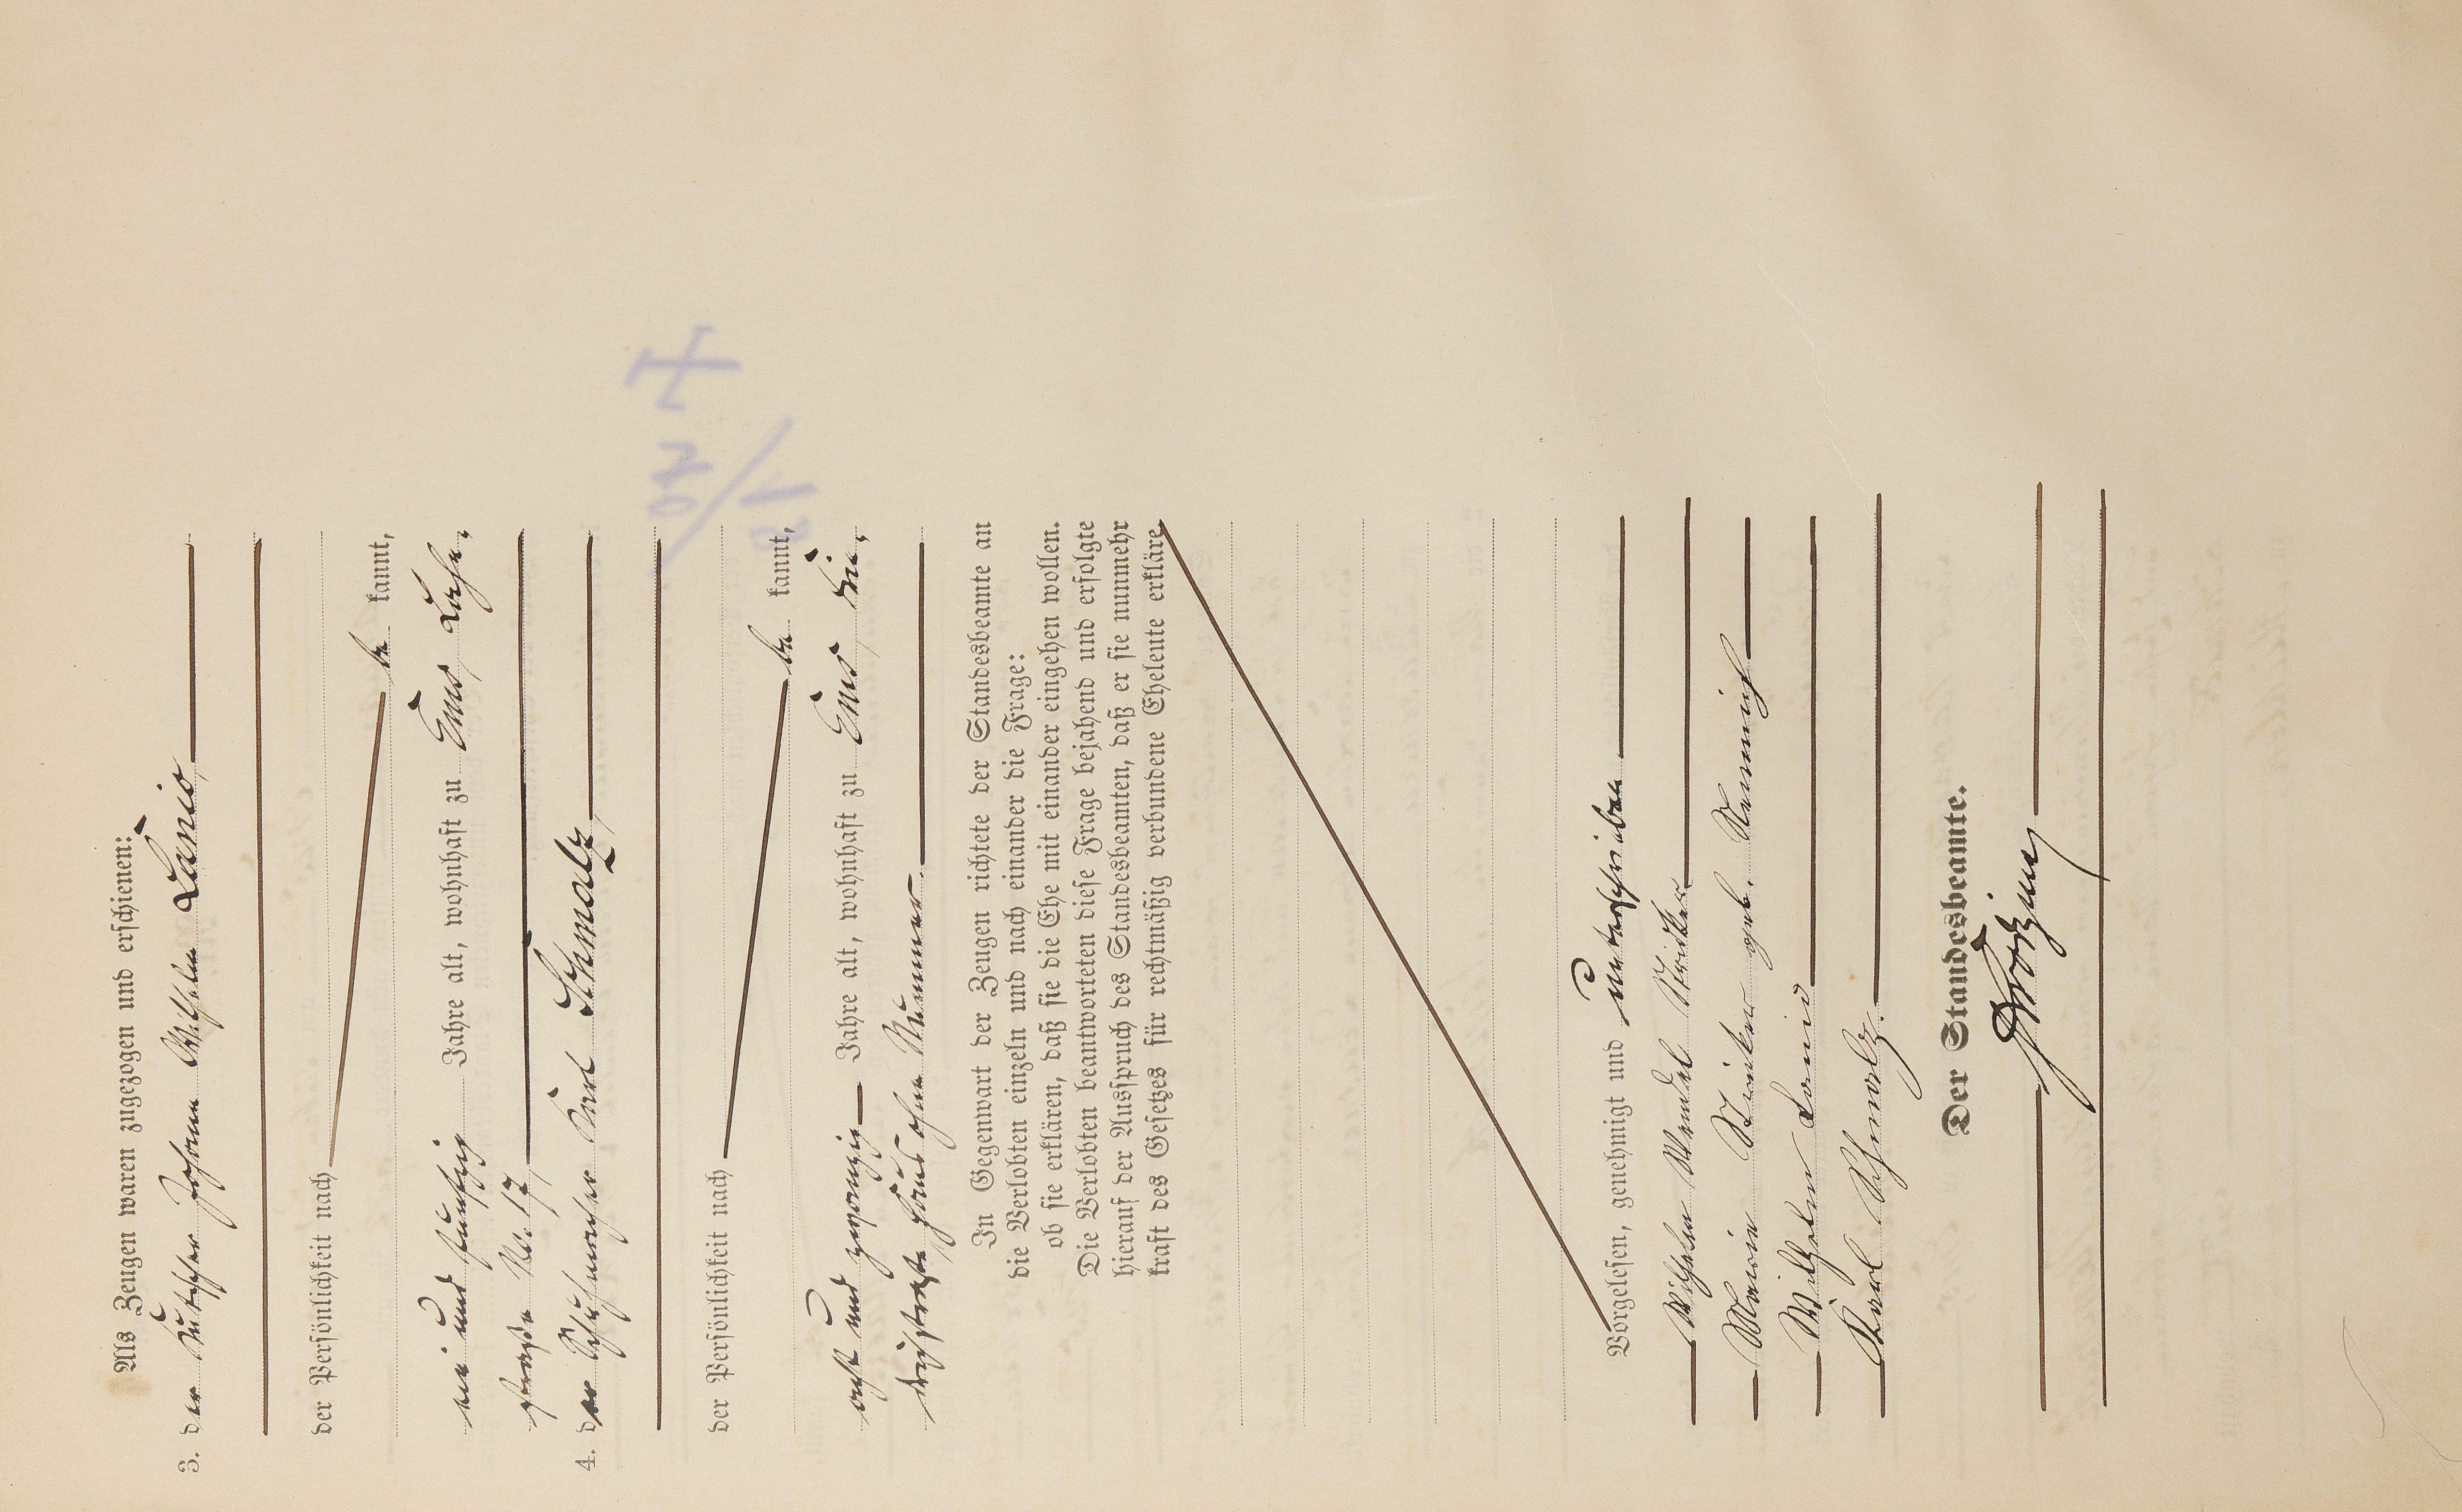 Als Zeugen waren zugezogen und erschienen:
3. der Kutscher Johann Wilhelm Lanio
der Persönlichkeit nach
be kannt,
ein und fünfzig Jahre alt, wohnhaft zu Ems, Lahn-
straße No. 17,
4. der Schuhmacher Karl Schmalz,
der Persönlichkeit nach
be kannt,
acht und zwanzig Jahre alt, wohnhaft zu Ems,
Haus ohne Nummer.
In Gegenwart der Zeugen richtete der Standesbeamte an
die Verlobten einzeln und nach einander die Frage:
ob sie erklären, daß sie die Ehe mit einander eingehen wollen.
Die Verlobten beantworteten diese Frage bejahend und erfolgte
hierauf der Ausspruch des Standesbeamten, daß er sie nunmehr
kraft des Gesetzes für rechtmäßig verbundene Eheleute erkläre.
Vorgelesen, genehmigt und unterschrieben
Wilhelm Wendel Stricker
Maria Stricker geb. Nennich
Wilhelm Lanio
Karl Schmalz.
Der Standesbeamte.